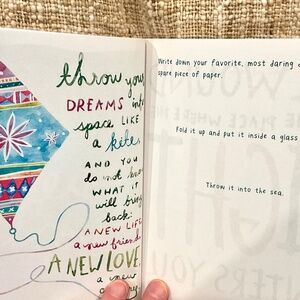 throw your
DREAMS into
space LIKE
a kite,
AND YOU
do not know
WHAT IT
will bring
back:
A NEW LIFE
a new friend
A NEW LOVE
a new
Write down your favorite, most daring
spare piece of paper.
Fold it up and put it inside a glass
Throw it into the sea.